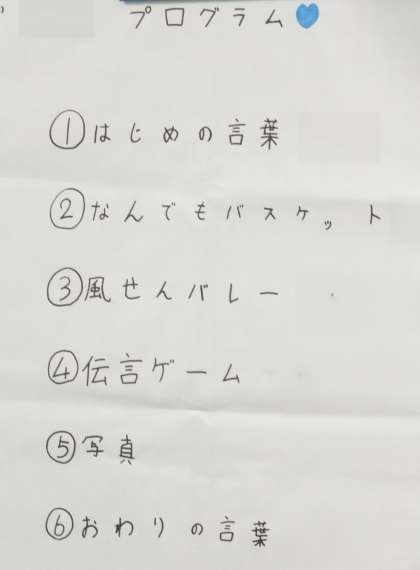 プログラム
①はじめの言葉
②なんでもバスケット
③風せんバレー
④伝言ゲーム
⑤写真
⑥おわりの言葉